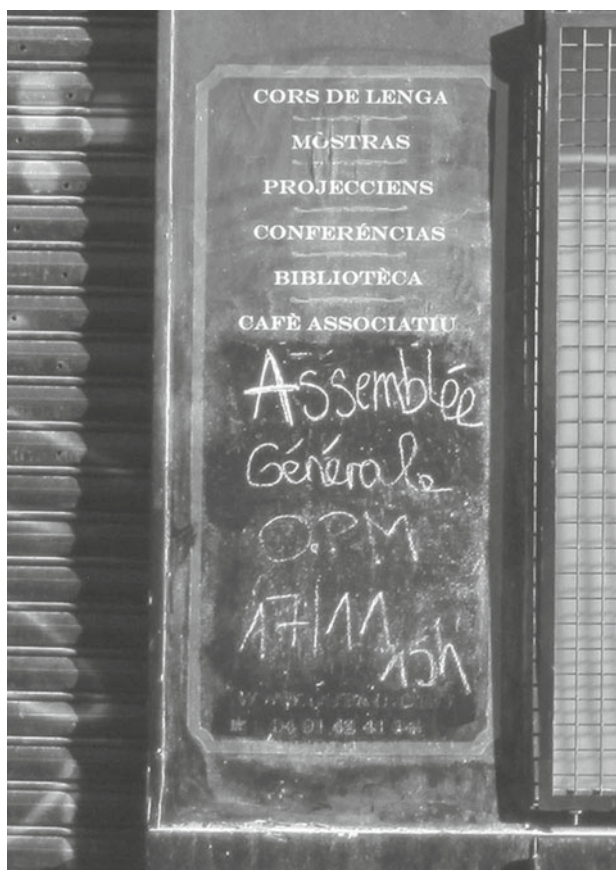 CORS DE LENGA
MÒSTRAS
PROJECCIENS
CONFERÉNCIAS
BIBLIOTÈCA
CAFÈ ASSOCIATIU
Assemblée
Générale
O.P.M
17/11
15h
04 91 42 41 14